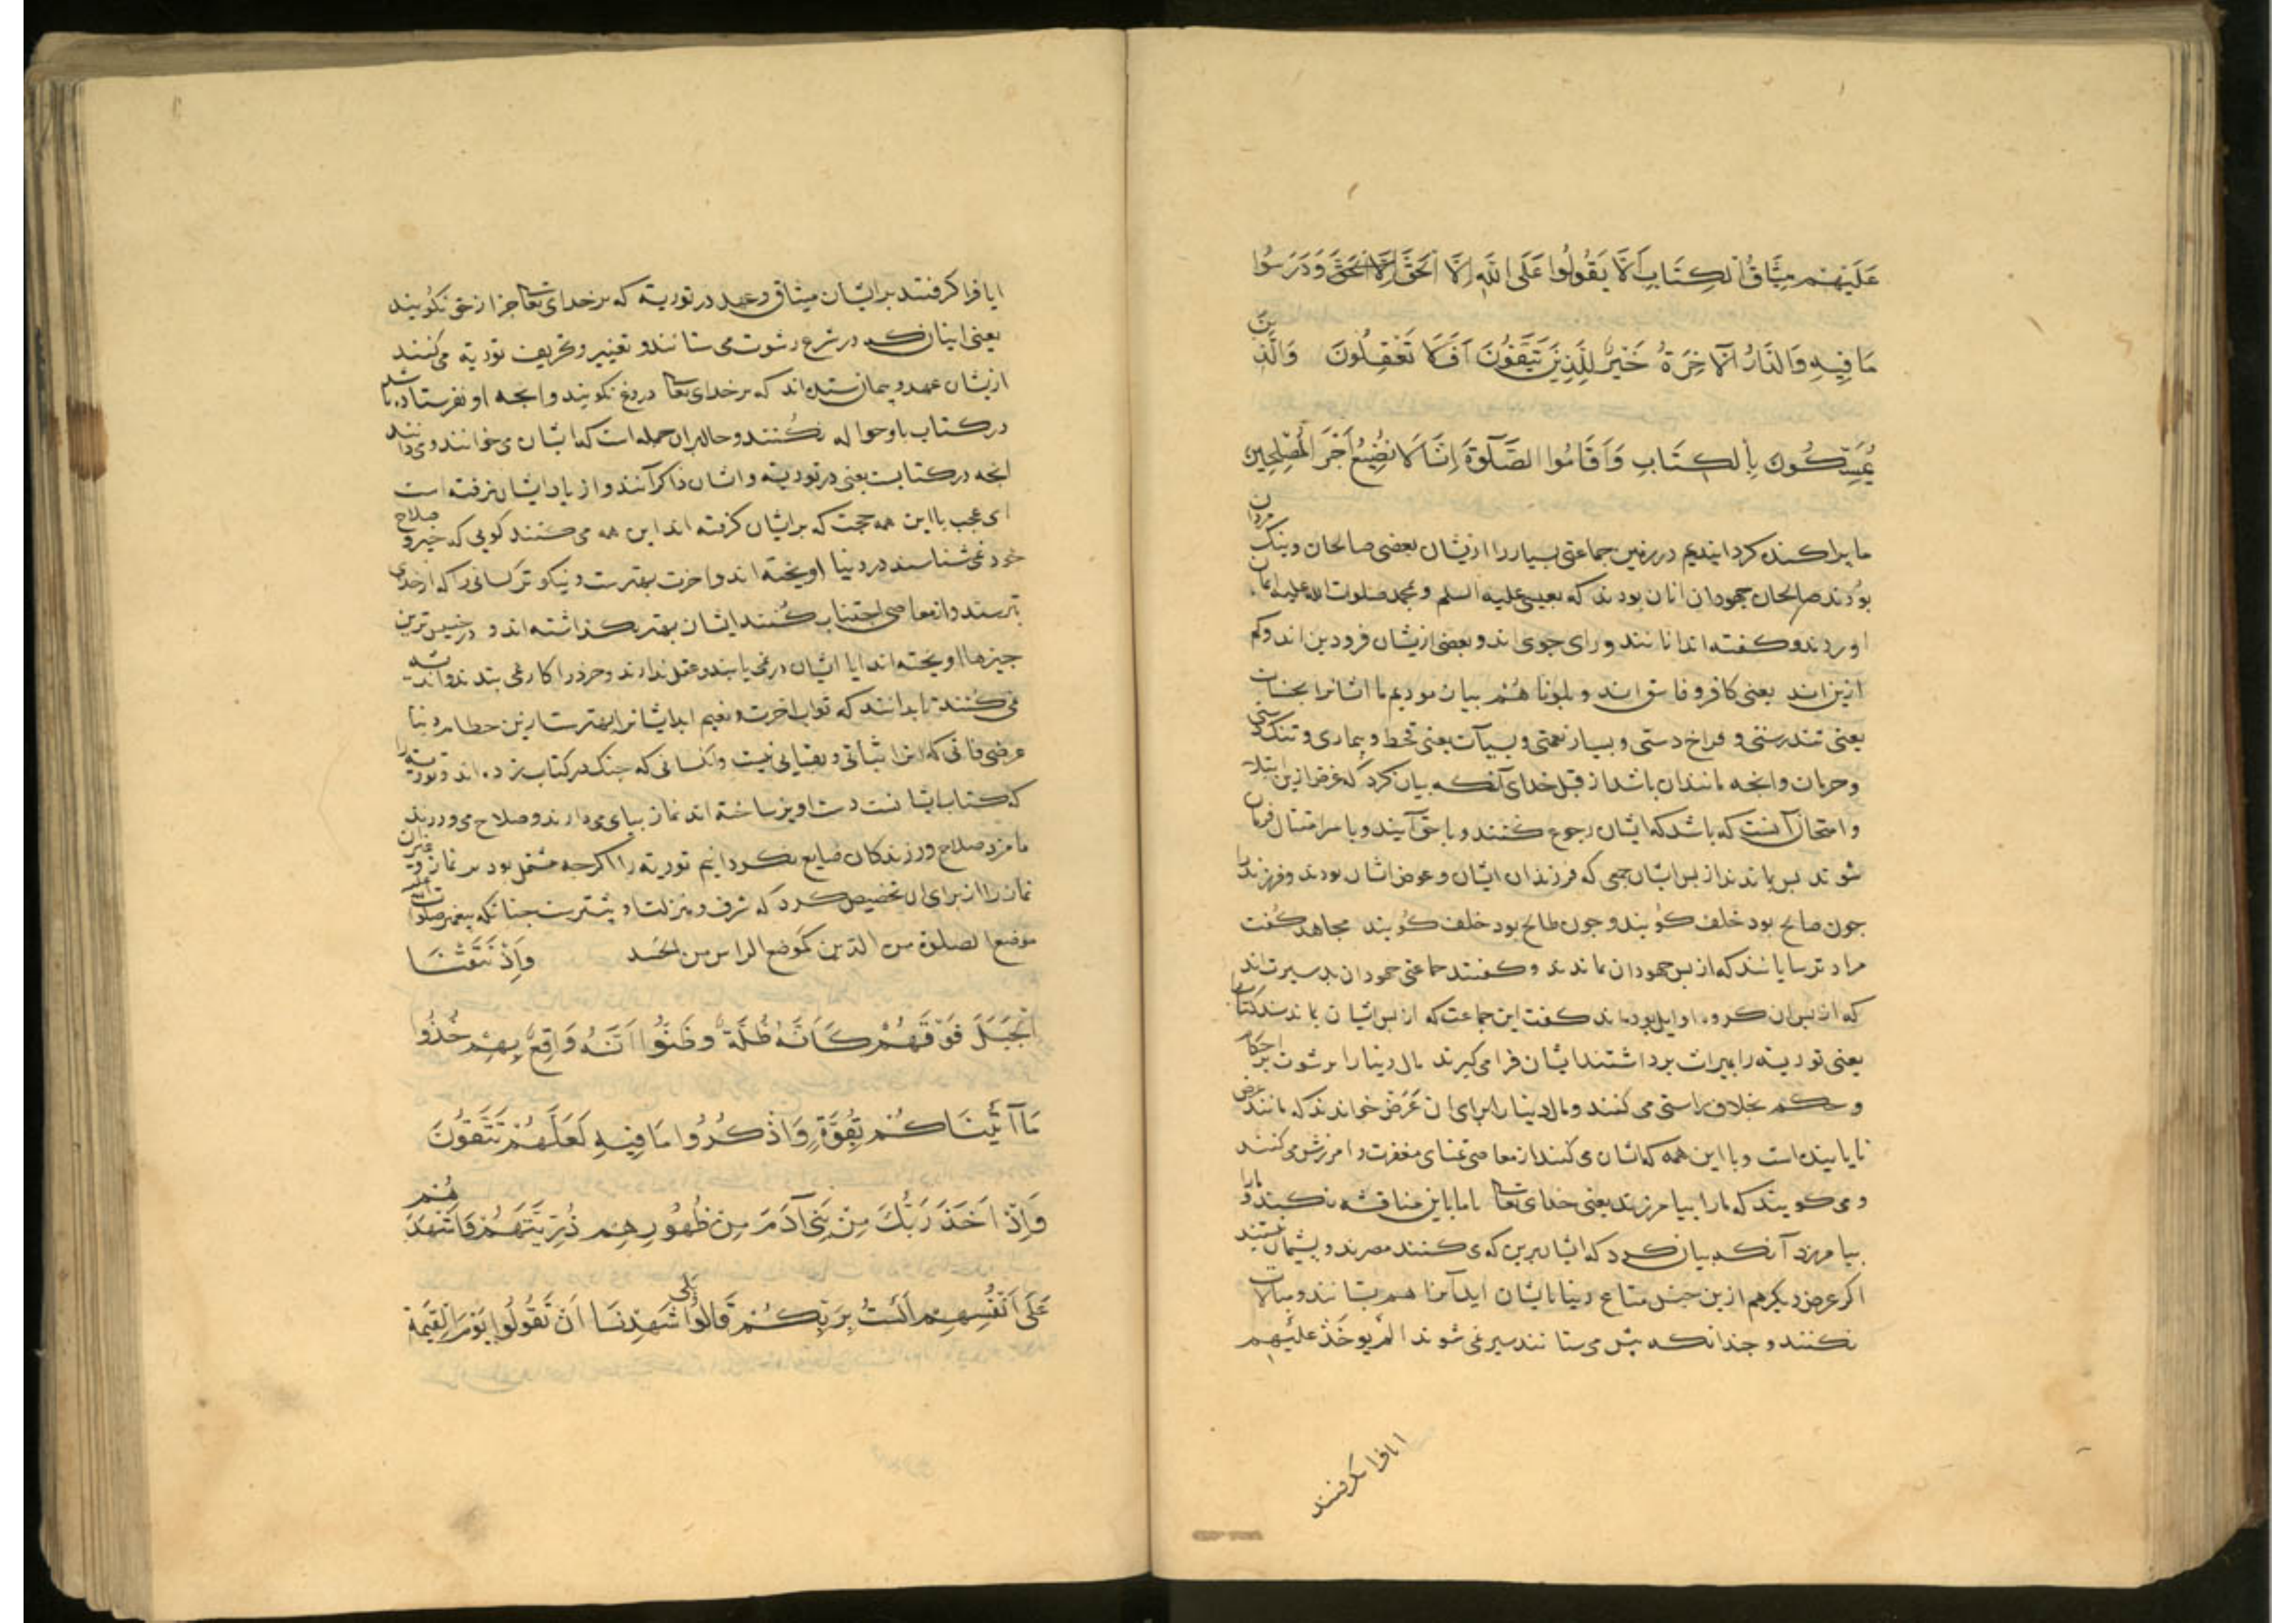 عَلَيْهِمْ مِيثَاقُ الْكِتَابِ أَلَّا يَقُولُوا عَلَى اللّٰهِ إِلَّا الْحَقَّ إِلَّا الْحَقَّ وَدَرَسُوا
مَا فِيهِ وَالدَّارُ الْآخِرَةُ خَيْرٌ لِلَّذِينَ يَتَّقُونَ أَفَلَا تَعْقِلُونَ وَالَّذِينَ
يُمَسِّكُونَ بِالْكِتَابِ وَأَقَامُوا الصَّلٰوةَ إِنَّا لَا نُضِيعُ أَجْرَ الْمُصْلِحِينَ
ما پراکنده کردانیدیم در زمین جماعتی بسیار را ازیشان بعضی صالحان و نیک مردان
بودند صالحان جهودان انان بودند که بعیسی علیه السلم و بمحمد صلوات الله علیه ایمان
اوردند و کفته اند انانند ورای جوی اند و بعضی ازیشان فرودین اند وکم
ازین اند یعنی کافر و فاسق اند و بلونا هُم بیان مودیم ما اشانرا بحسنات
یعنی تندرستی و فراخ دستی و بسیار نعمتی وسیآت یعنی قحط و بیماری و تنک دستی
وحرمان وانجه مانندان باشد از قبل خدای آنکه بیان کرد که غرض ازین ابتلا
و امتحان آنست که باشد که ایشان رجوع کنند و با حق آیند و با سر امتثال فرمان
شوند بس بماندند از بس ایشان جمعی که فرزندان ایشان و عوض اشان بودند و فرزند را
جون صالح بود خلَف کویند و جون طالح بود خلف کویند مجاهد کفت
مراد ترسایانند که از بس جهودان بماندند و کفتند جماعتی جهودان بدسیرت اند
که از بس ان کروه اوایل بودماند کفت این جماعت که از بس اشیان بماندند کتاب را
یعنی توریته را بمیراث برداشتند ایشان فرا می کیرند مال دنیا را بر شوت بر احکام
و حکم بخلاف راستی می کنند و مال دنیا را برای ان عَرَض خوانند که مانند عرض
ناپاینده است و با این همه که اشان می کنند از معاصی تمنای مغفرت و امرزش می کنند
و می کویند که ما را بیامرزند یعنی خدای تعا با ما باین مناقشه نکند و ما را
بیامرزد آنکه بیان کرد که ایشان برین که می کنند مصرند و بشیمان نیستند
اکر عرض دیکر هم ازین جنس متاع دنیا بایشان اید آنرا هم بستانند و مبالات
نکنند و جندانکه بیش می ستانند سیر نمی شوند الم یوخَذ علیهم
ایا فرا کرفتند
ایا فرا کرفتند برایشان میثاق و عهد در توریة که بر خدای تعا جز از حق نکویند
یعنی اینان که در شرع رشوت می ستانند و تغییر و تحریف توریة می کنند
ازیشان عهد و پیمان ستده اند که بر خدای تعا دروغ نکویند وانجه او نفرستاده باشد
در کتاب باو حواله نکنند و حال بران جمله است که ایشان می خوانند و می دانند
انجه در کتابست یعنی در توریة و اشان ذاکر آنند و از یاد ایشان نرفته است
ای عجب با این همه حجت که برایشان کرفته اند این همه می کنند کویی که خیر و صلاح
خود نمی شناسند در دنیا اویخته اند و اخرت بهترست و نیکوتر کسانی را که از خدای
بترسند و از معاصی اجتناب کنند ایشان بهتر بکذاشته اند و در خسیس ترین
جیزها اویخته اند ایا ایشان در نمی یابند و عقل ندارند و خرد را کار نمی بندند و اندیشه
نمی کنند تا بدانند که ثواب اخرت و نعیم ابد ایشانرا بهترست ازین حطام دنیا
عرضی فانی که انرا ثباتی و بقیایی نیست وانکسانی که جنک در کتاب زده اند و توریة را
که کتاب ایشانست دست اویز ساخته اند نماز بپای می دارند و صلاح می ورزند
ما مزد صلاح ورزندکان ضایع نکردانیم توریة را اکرجه مشتمل بود بر نماز و غیر آن
نماز را از برای ان تخصیص کرد که شرف و منزلت او بیشترست جنانکه بیغمبر صلوات الله علیه
موضع الصلوة من الدّین کموضع الراس من الجَسد وَإِذْ نَتَقْنَا
الْجَبَلَ فَوْقَهُمْ كَأَنَّهُ ظُلَّةٌ وَظَنُّوا أَنَّهُ وَاقِعٌ بِهِمْ خُذُوا
مَا آتَيْنَاكُمْ بِقُوَّةٍ وَاذْكُرُوا مَا فِيهِ لَعَلَّهُمْ تَتَّقُونَ
وَإِذْ أَخَذَ رَبُّكَ مِنْ بَنِي آدَمَ مِنْ ظُهُورِهِمْ ذُرِّيَّتَهُمْ فَأَشْهَدَهُمْ
عَلَى أَنْفُسِهِمْ أَلَسْتُ بِرَبِّكُمْ قَالُوا بَلَى شَهِدْنَا أَنْ تَقُولُوا يَوْمَ الْقِيَمَةِ